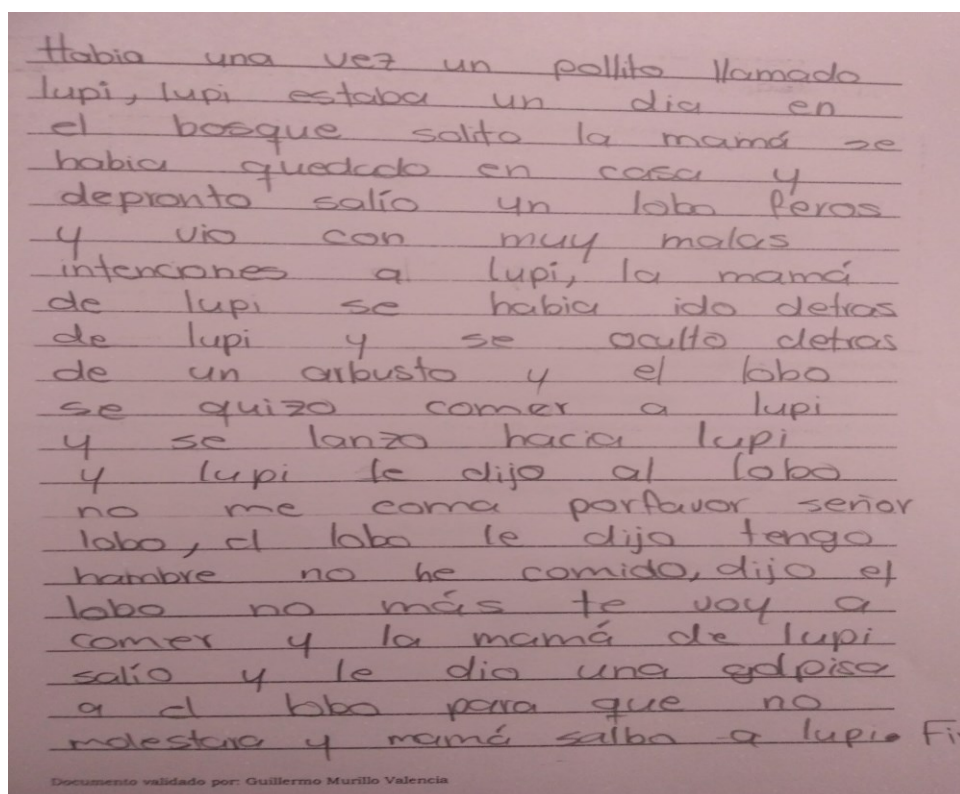 Habia una vez un pollito llamado
lupi, lupi estaba un dia en
el bosque solito la mamá se
habia quedado en casa y
depronto salío un lobo feros
y vio con muy malas
intenciones a lupi, la mamá
de lupi se habia ido detras
de lupi y se oculto detras
de un arbusto y el lobo
se quizo comer a lupi
y se lanzo hacia lupi
y lupi le dijo al lobo
no me coma porfavor señor
lobo, el lobo le dijo tengo
hambre no he comido, dijo el
lobo no más te voy a
comer y la mamá de lupi
salío y le dio una golpisa
a el lobo para que no
molestara y mamá salbo a lupi. Fi
Documento validado por: Guillermo Murillo Valencia